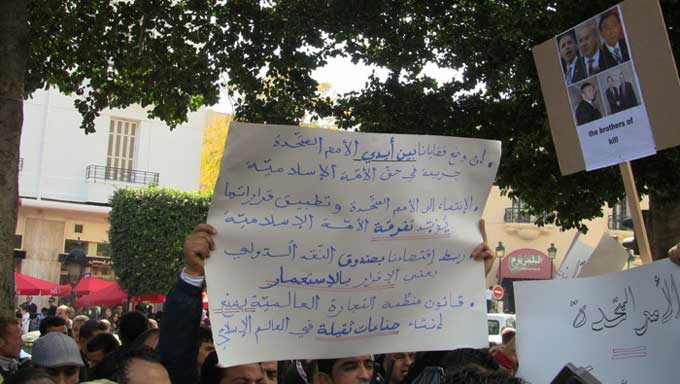 • إن وضع قضايانا بين أيدي الأمم المتحدة
جريمة في حق الأمة الإسلامية
• الإنتماء إلى الأمم المتحدة وتطبيق قراراتها
يؤكد تفرقة الأمة الإسلامية
• ربط إقتصادنا بصندوق النقد الدولي
يعني الإقرار بالإستعمار
• قانون منظمة التجارة العالمية يمنع
إنشاء صناعات ثقيلة في العالم الإسلامي
the brothers of
kill
الأمم المتحدة